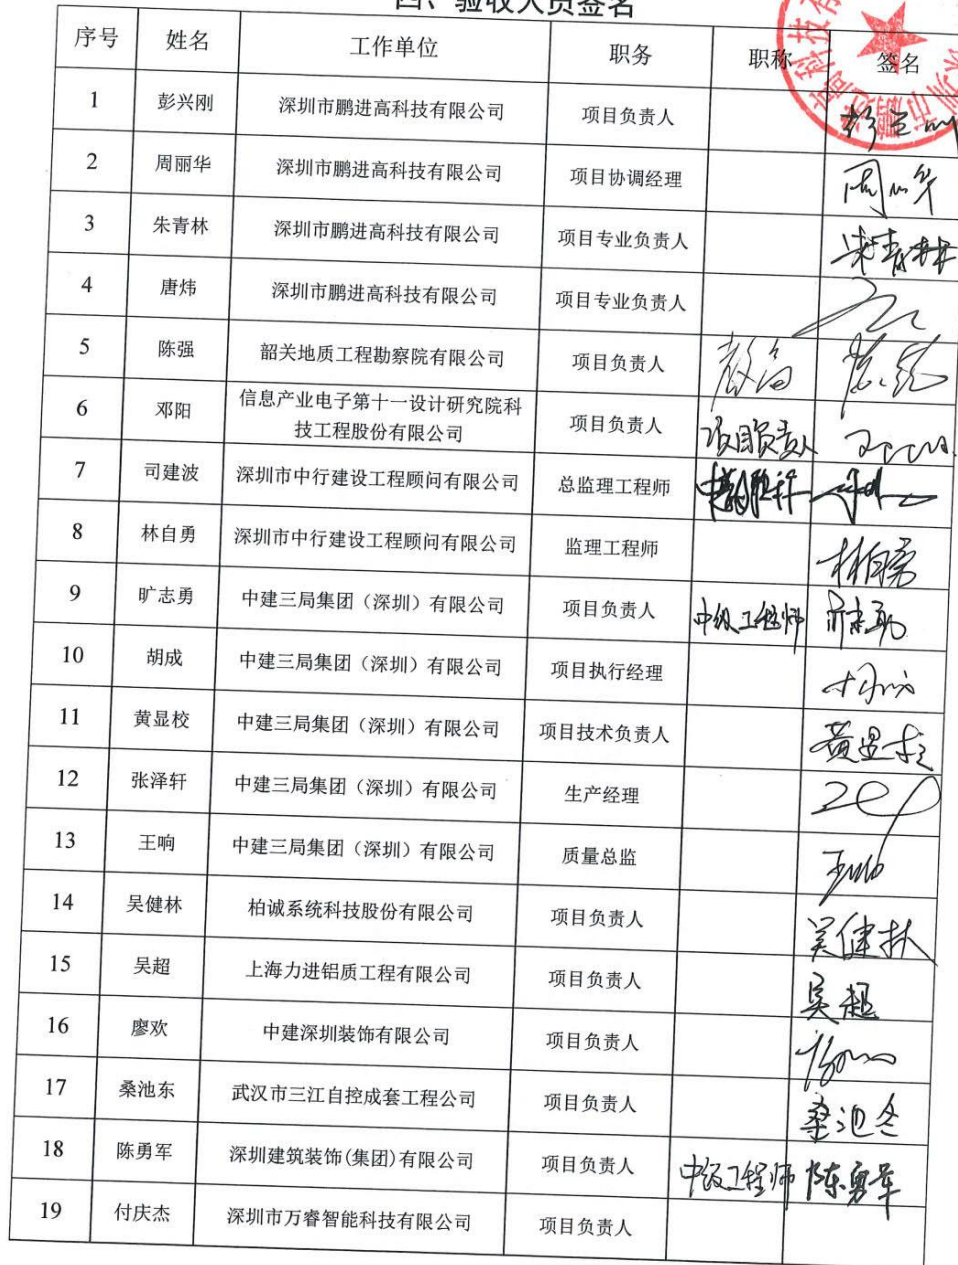 四、验收人员签名
序号 姓名 工作单位 职务 职称 签名
1 彭兴刚 深圳市鹏进高科技有限公司 项目负责人
2 周丽华 深圳市鹏进高科技有限公司 项目协调经理
3 朱青林 深圳市鹏进高科技有限公司 项目专业负责人 朱青林
4 唐炜 深圳市鹏进高科技有限公司 项目专业负责人
5 陈强 韶关地质工程勘察院有限公司 项目负责人
6 邓阳 信息产业电子第十一设计研究院科 项目负责人 项目负责人
技工程股份有限公司
7 司建波 深圳市中行建设工程顾问有限公司 总监理工程师
8 林自勇 深圳市中行建设工程顾问有限公司 监理工程师 林自勇
9 旷志勇 中建三局集团（深圳）有限公司 项目负责人 中级工程师
10 胡成 中建三局集团（深圳）有限公司 项目执行经理
11 黄显校 中建三局集团（深圳）有限公司 项目技术负责人 黄显校
12 张泽轩 中建三局集团（深圳）有限公司 生产经理
13 王响 中建三局集团（深圳）有限公司 质量总监
14 吴健林 柏诚系统科技股份有限公司 项目负责人 吴健林
15 吴超 上海力进铝质工程有限公司 项目负责人 吴超
16 廖欢 中建深圳装饰有限公司 项目负责人
17 桑池东 武汉市三江自控成套工程公司 项目负责人 桑池东
18 陈勇军 深圳建筑装饰(集团)有限公司 项目负责人 中级工程师 陈勇军
19 付庆杰 深圳市万睿智能科技有限公司 项目负责人